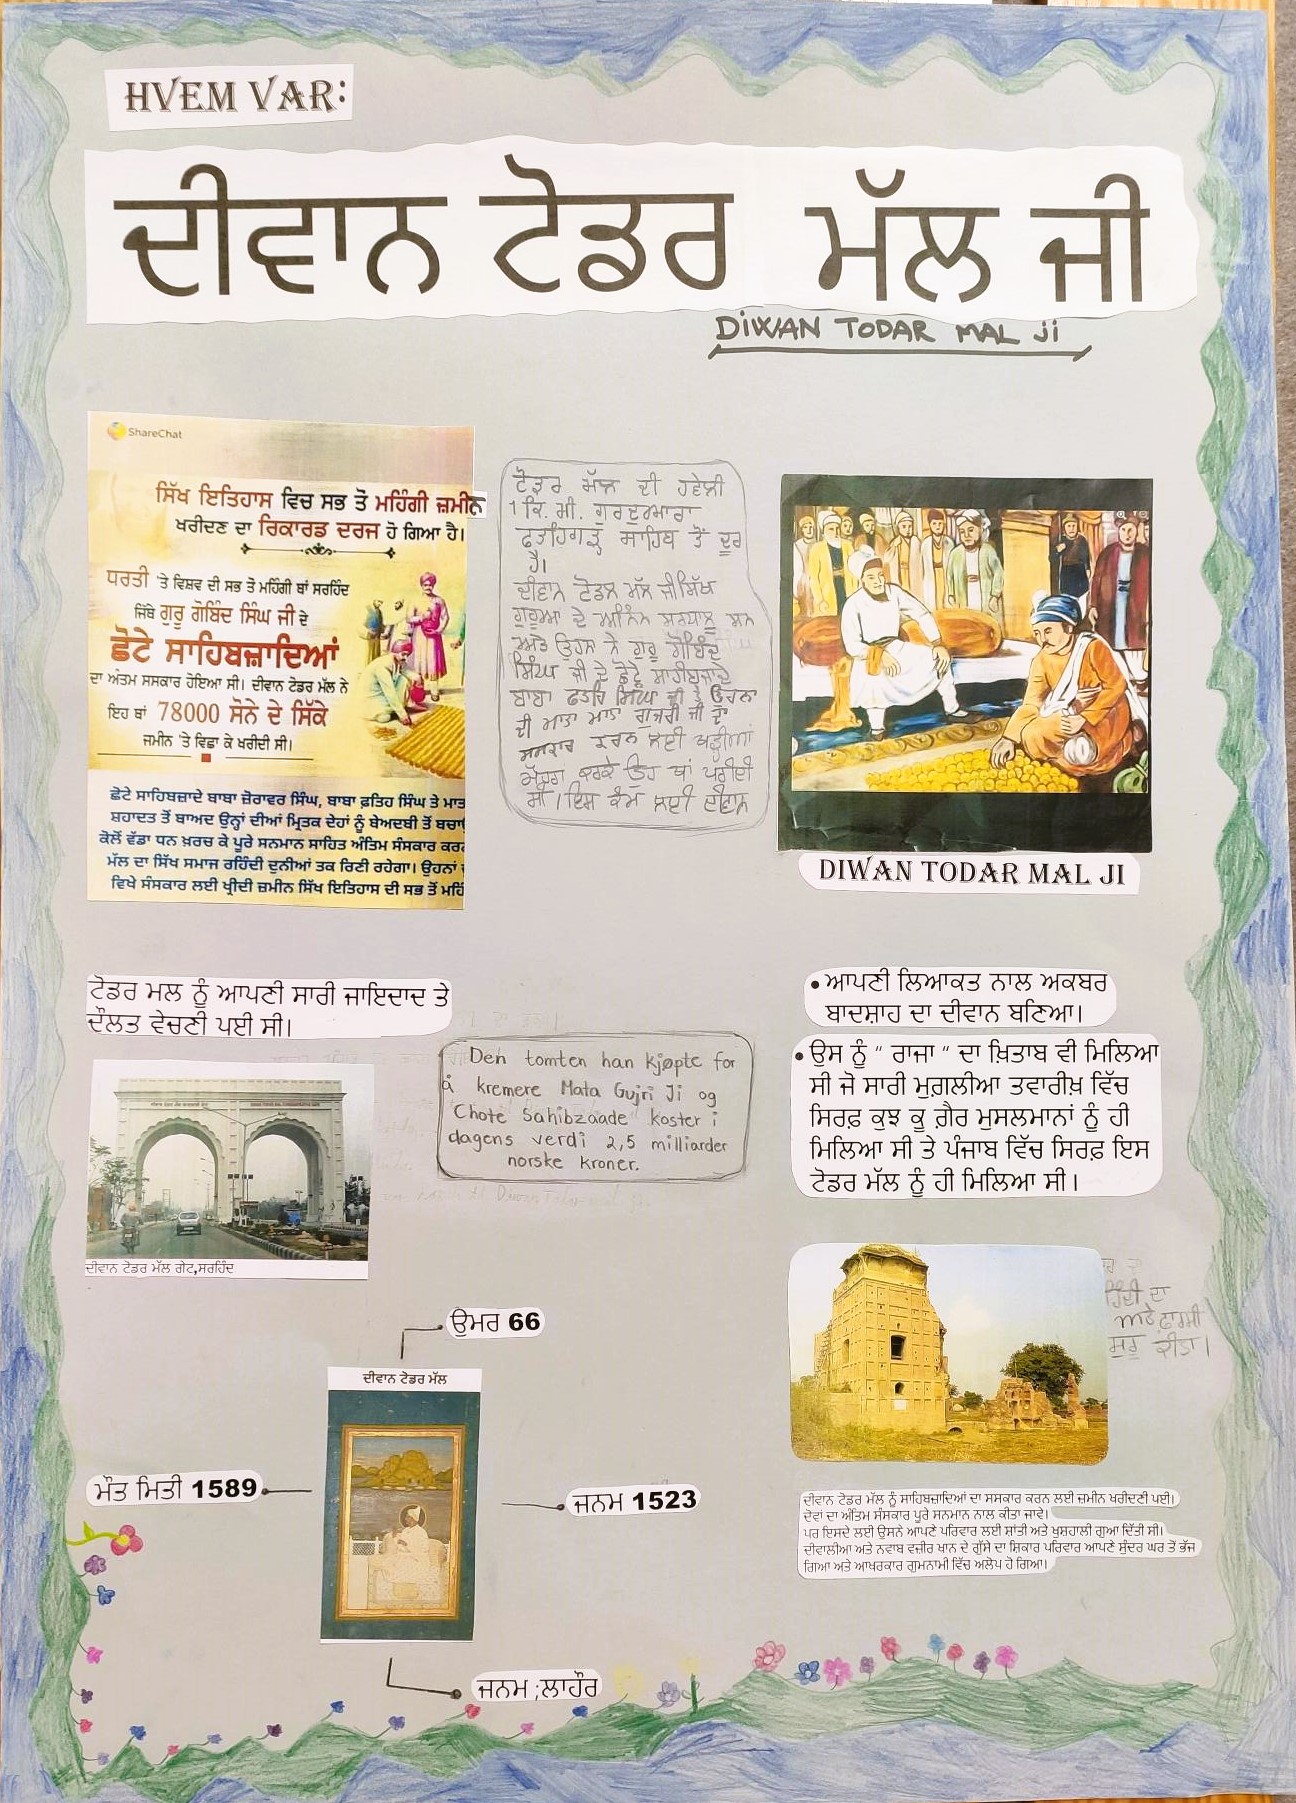 HVEM VAR:
ਦੀਵਾਨ ਟੋਡਰ ਮੱਲ ਜੀ
DIWAN TODAR MAL Ji
ShareChat
ਸਿੱਖ ਇਤਿਹਾਸ ਵਿਚ ਸਭ ਤੋਂ ਮਹਿੰਗੀ ਜ਼ਮੀਨ
ਖਰੀਦਣ ਦਾ ਰਿਕਾਰਡ ਦਰਜ ਹੋ ਗਿਆ ਹੈ।
ਧਰਤੀ 'ਤੇ ਵਿਸ਼ਵ ਦੀ ਸਭ ਤੋਂ ਮਹਿੰਗੀ ਥਾਂ ਸਰਹਿੰਦ
ਜਿੱਥੇ ਗੁਰੂ ਗੋਬਿੰਦ ਸਿੰਘ ਜੀ ਦੇ
ਛੋਟੇ ਸਾਹਿਬਜ਼ਾਦਿਆਂ
ਦਾ ਅੰਤਿਮ ਸਸਕਾਰ ਹੋਇਆ ਸੀ। ਦੀਵਾਨ ਟੋਡਰ ਮੱਲ ਨੇ
ਇਹ ਥਾਂ 78000 ਸੋਨੇ ਦੇ ਸਿੱਕੇ
ਜਮੀਨ 'ਤੇ ਵਿਛਾ ਕੇ ਖਰੀਦੀ ਸੀ।
ਛੋਟੇ ਸਾਹਿਬਜ਼ਾਦੇ ਬਾਬਾ ਜ਼ੋਰਾਵਰ ਸਿੰਘ, ਬਾਬਾ ਫ਼ਤਿਹ ਸਿੰਘ ਤੇ ਮਾਤ
ਸ਼ਹਾਦਤ ਤੋਂ ਬਾਅਦ ਉਨ੍ਹਾਂ ਦੀਆਂ ਮ੍ਰਿਤਕ ਦੇਹਾਂ ਨੂੰ ਬੇਅਦਬੀ ਤੋਂ ਬਚਾ
ਕੋਲੋਂ ਵੱਡਾ ਧਨ ਖ਼ਰਚ ਕੇ ਪੂਰੇ ਸਨਮਾਨ ਸਾਹਿਤ ਅੰਤਿਮ ਸੰਸਕਾਰ ਕਰ
ਮੱਲ ਦਾ ਸਿੱਖ ਸਮਾਜ ਰਹਿੰਦੀ ਦੁਨੀਆਂ ਤਕ ਰਿਣੀ ਰਹੇਗਾ। ਉਹਨਾਂ
ਵਿਖੇ ਸੰਸਕਾਰ ਲਈ ਖ੍ਰੀਦੀ ਜ਼ਮੀਨ ਸਿੱਖ ਇਤਿਹਾਸ ਦੀ ਸਭ ਤੋਂ ਮਹਿੰ
ਟੋਡਰ ਮੱਲ ਦੀ ਹਵੇਲੀ
1 ਕਿ. ਮੀ. ਗੁਰਦੁਆਰਾ
ਸਾਹਿਬ ਤੋਂ ਦੂਰ
ਹੈ।
ਦੀਵਾਨ ਟੋਡਰ ਮੱਲ ਜੀ ਸਿੱਖ
ਗੁਰੂਆਂ ਦੇ
ਨੇ ਗੁਰੂ ਗੋਬਿੰਦ
ਸਿੰਘ ਜੀ ਦੇ ਛੋਟੇ ਸਾਹਿਬਜਾਦੇ
ਬਾਬਾ ਫਤਹਿ ਸਿੰਘ ਜੀ ਤੇ
ਦੀ ਮਾਤਾ ਜੀ ਦਾ
ਸਸਕਾਰ ਕਰਨ ਲਈ
ਕਰਕੇ ਇਹ ਥਾਂ
ਸੀ। ਇਸ ਕੰਮ ਲਈ ਦੀਵਾਨ
DIWAN TODAR MAL JI
ਟੋਡਰ ਮਲ ਨੂੰ ਆਪਣੀ ਸਾਰੀ ਜਾਇਦਾਦ ਤੇ
ਦੌਲਤ ਵੇਚਣੀ ਪਈ ਸੀ।
Den tomten han kjøpte for
å kremere Mata Gujri Ji og
"Chote Sahibzaade" koster i
dagens verdi 2,5 milliarder
norske kroner.
• ਆਪਣੀ ਲਿਆਕਤ ਨਾਲ ਅਕਬਰ
ਬਾਦਸ਼ਾਹ ਦਾ ਦੀਵਾਨ ਬਣਿਆ।
• ਉਸ ਨੂੰ " ਰਾਜਾ " ਦਾ ਖ਼ਿਤਾਬ ਵੀ ਮਿਲਿਆ
ਸੀ ਜੋ ਸਾਰੀ ਮੁਗ਼ਲੀਆ ਤਵਾਰੀਖ਼ ਵਿੱਚ
ਸਿਰਫ਼ ਕੁਝ ਕੂ ਗ਼ੈਰ ਮੁਸਲਮਾਨਾਂ ਨੂੰ ਹੀ
ਮਿਲਿਆ ਸੀ ਤੇ ਪੰਜਾਬ ਵਿੱਚ ਸਿਰਫ਼ ਇਸ
ਟੋਡਰ ਮੱਲ ਨੂੰ ਹੀ ਮਿਲਿਆ ਸੀ।
ਦੀਵਾਨ ਟੋਡਰ ਮੱਲ ਗੇਟ,ਸਰਹਿੰਦ
ਉਮਰ 66
ਦੀਵਾਨ ਟੋਡਰ ਮੱਲ
ਮੌਤ ਮਿਤੀ 1589
ਜਨਮ 1523
ਜਨਮ ;ਲਾਹੌਰ
ਦਾ
ਸ਼ੁਰੂ ਕੀਤਾ।
ਦੀਵਾਨ ਟੋਡਰ ਮੱਲ ਨੂੰ ਸਾਹਿਬਜ਼ਾਦਿਆਂ ਦਾ ਸਸਕਾਰ ਕਰਨ ਲਈ ਜ਼ਮੀਨ ਖਰੀਦਣੀ ਪਈ।
ਦੋਵਾਂ ਦਾ ਅੰਤਿਮ ਸੰਸਕਾਰ ਪੂਰੇ ਸਨਮਾਨ ਨਾਲ ਕੀਤਾ ਜਾਵੇ।
ਪਰ ਇਸਦੇ ਲਈ ਉਸਨੇ ਆਪਣੇ ਪਰਿਵਾਰ ਲਈ ਸ਼ਾਂਤੀ ਅਤੇ ਖੁਸ਼ਹਾਲੀ ਗੁਆ ਦਿੱਤੀ ਸੀ।
ਦੀਵਾਲੀਆ ਅਤੇ ਨਵਾਬ ਵਜ਼ੀਰ ਖਾਨ ਦੇ ਗੁੱਸੇ ਦਾ ਸ਼ਿਕਾਰ ਪਰਿਵਾਰ ਆਪਣੇ ਸੁੰਦਰ ਘਰ ਤੋਂ ਭੱਜ
ਗਿਆ ਅਤੇ ਆਖਰਕਾਰ ਗੁਮਨਾਮੀ ਵਿੱਚ ਅਲੋਪ ਹੋ ਗਿਆ।